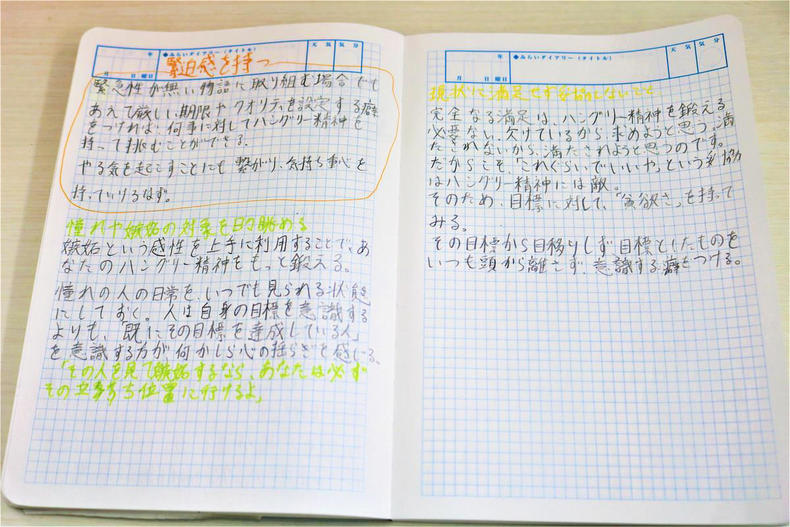 年 ●みらいダイアリー(タイトル) 天気 気分
月 日 曜日
緊迫感を持つ
緊急性が無い物語に取り組む場合でも
あえて厳しい期限やクオリティを設定する癖
をつければ、何事に対してハングリー精神を
持って挑むことができる。
やる気を起こすことにも繋がり、気持ち動心を
持っていけるはず。
憧れや嫉妬の対象を日々眺める
嫉妬という感性を上手に利用することで、あ
なたのハングリー精神をもっと鍛える。
憧れの人の日常を、いつでも見られる状態
にしておく。人は自身の目標を意識する
よりも、「既にその目標を達成している人」
を意識する方が何かしら心の揺らぎを感じる。
「その人を見て嫉妬するなら、あなたは必ず
その立ち位置に行けるよ」
年 ●みらいダイアリー(タイトル) 天気 気分
月 日 曜日
現状に満足せず妥協しないこと
完全なる満足は、ハングリー精神を鍛える
必要ない。欠けているから求めようと思う。満
たされないから、満たされようと思うのです。
だからこそ、「これぐらいでいいや」という妥協
はハングリー精神には敵。
そのため、目標に対して、「貪欲さ」を持って
みる。
その目標から目移りしず目標としたものを
いつも頭から離さず、意識する癖をつける。